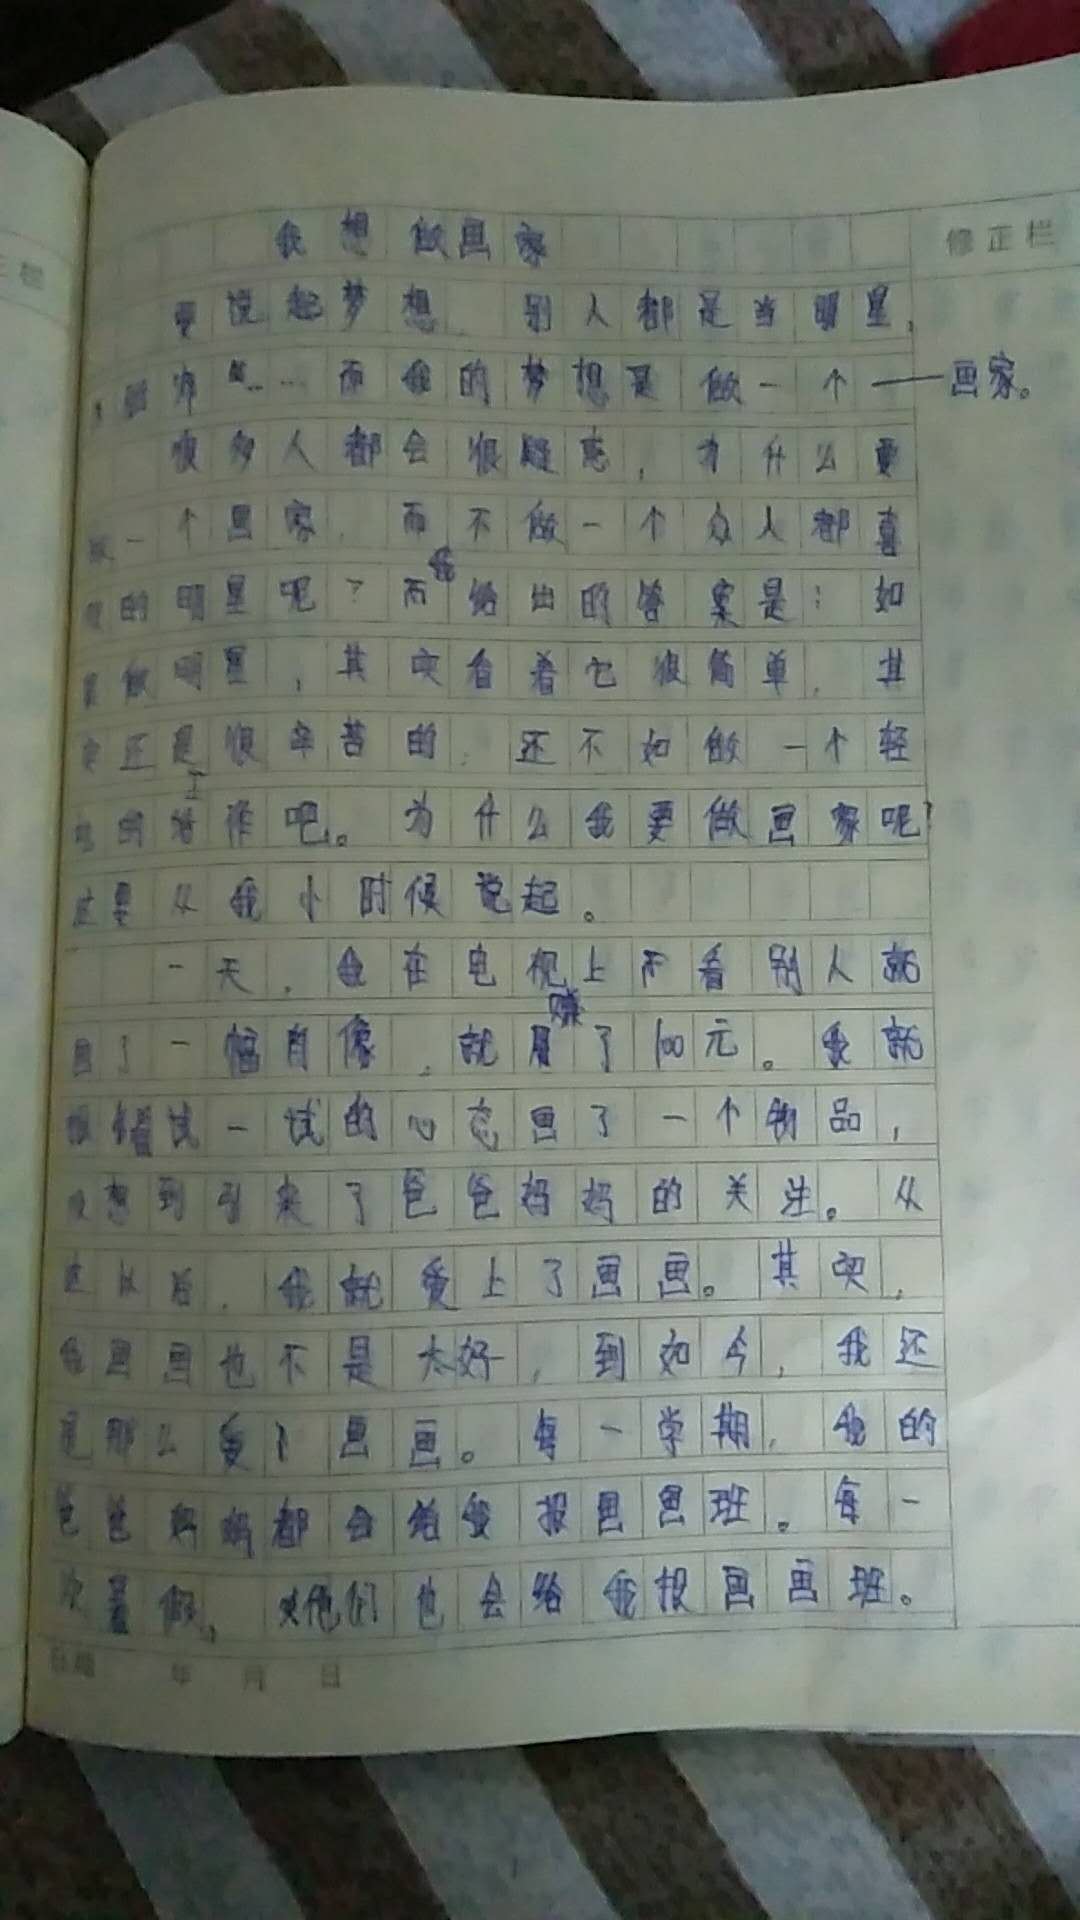 我想做画家
修正栏
要说起梦想，别人都是当明星，
师……而我的梦想是做一个——画家。
很多人都会很疑惑，为什么要
做一个画家，而不做一个众人都喜
欢的明星呢？而我给出的答案是：如
果做明星，其实看着它很简单，其
实还是很辛苦的，还不如做一个轻
松的工作吧。为什么我要做画家呢？
这要从我小时候说起。
一天，我在电视上而看别人就
画了一幅肖像，就赚了100元。我就
着试一试的心态画了一个物品，
没想到引来了爸爸妈妈的关注。从
这以后，我就爱上了画画。其实，
我画画也不是太好，到如今，我还
是那么爱画画。每一学期，我的
爸爸妈妈都会给我报画画班。每一
次暑假，他们也会给我报画画班。
日期 年 月 日